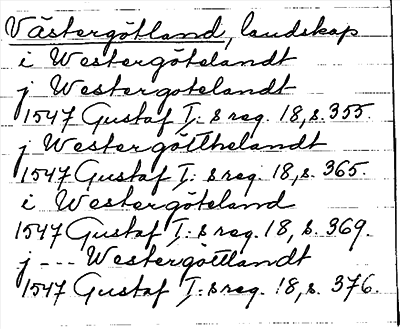 Västergötland, landskap
i Westergötelandt
j Westergotelandt
1547 Gustaf I:s reg. 18, s. 355.
j Westergötthelandt
1547 Gustaf I:s reg. 18, s. 365.
i Westergöteland
1547 Gustaf I:s reg. 18, s. 369.
j --- Westergöttlandt
1547 Gustaf I:s reg. 18, s. 376.